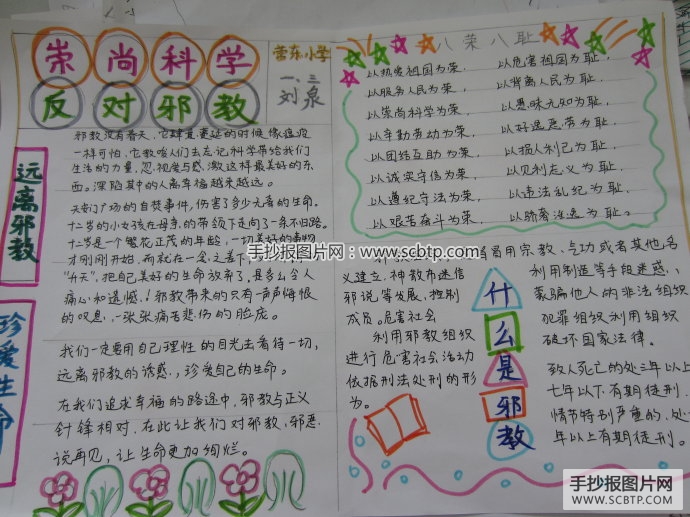 崇尚科学
反对邪教
营东小学
一、三
刘泉
远离邪教
珍爱生命
邪教没有春天，它肆意蔓延的时候像瘟疫
一样可怕，它教唆人们去忘记科学带给我们
生活的力量，忽视度与感激这样最美好的东
西。深陷其中的人离幸福越来越远。
天安门广场的自焚事件，伤害了多少无辜的生命。
十二岁的小女孩在母亲的带领下走向了一条不归路。
十二岁是一个繁花正茂的年龄，一切美好的事物
才刚刚开始，而就在一念之差下
“升天”，把自己美好的生命放弃了，是多么令人
痛心和遗憾！邪教带来的只有一声声悔恨
的叹息，一张张痛苦悲伤的脸庞。
我们一定要用自己理性的目光去看待一切，
远离邪教的诱惑，珍爱自己的生命。
在我们追求幸福的路途中，邪教与正义
针锋相对，在此让我们对邪教、邪恶
说再见，让生命更加绚烂。
八荣八耻
以热爱祖国为荣，以危害祖国为耻，
以服务人民为荣，以背离人民为耻，
以崇尚科学为荣，以愚昧无知为耻，
以辛勤劳动为荣，以好逸恶劳为耻，
以团结互助为荣，以损人利己为耻，
以诚实守信为荣，以见利忘义为耻，
以遵纪守法为荣，以违法乱纪为耻，
以艰苦奋斗为荣，以骄奢淫逸为耻。
什么是邪教
冒用宗教、气功或者其他名
义建立，神教布迷信
邪说等发展，控制
成员，危害社会
利用邪教组织
进行危害社会活动
依据刑法处刑的形
为。
利用制造等手段迷惑、
蒙骗他人的非法组织
犯罪组织利用组织
破坏国家法律。
致人死亡的处三年以上
七年以下有期徒刑，
情节特别严重的，处
年以上有期徒刑。
手抄报图片网：www.scbtp.com
手抄报图片网
WWW.SCBTP.COM